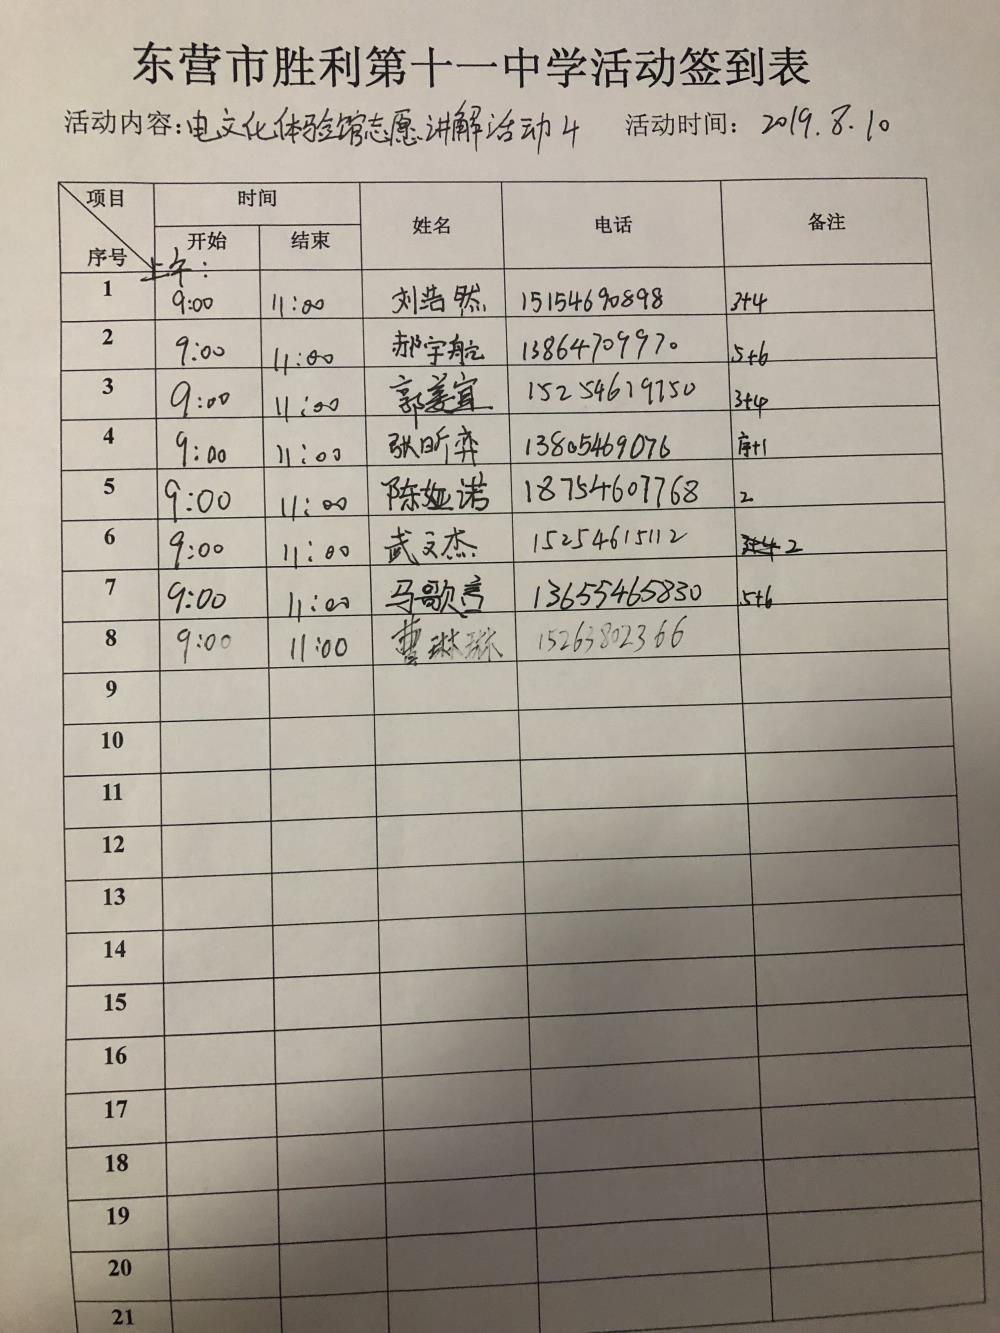 东营市胜利第十一中学活动签到表
活动内容：电文化体验馆志愿讲解活动4 活动时间：2019.8.10
项目 时间 姓名 电话 备注
序号 开始 结束
上午：
1 9:00 11:00 刘浩然 15154690898 3+4
2 9:00 11:00 郝宇航 13864709970 5+6
3 9:00 11:00 郭姜宜 15254619750 3+4
4 9:00 11:00 张昕弈 13805469076 序+1
5 9:00 11:00 陈娅诺 18754607768 2
6 9:00 11:00 武文杰 15254615112 2
7 9:00 11:00 马歌言 13655465830 5+6
8 9:00 11:00 曹琳琳 15263802366
9
10
11
12
13
14
15
16
17
18
19
20
21